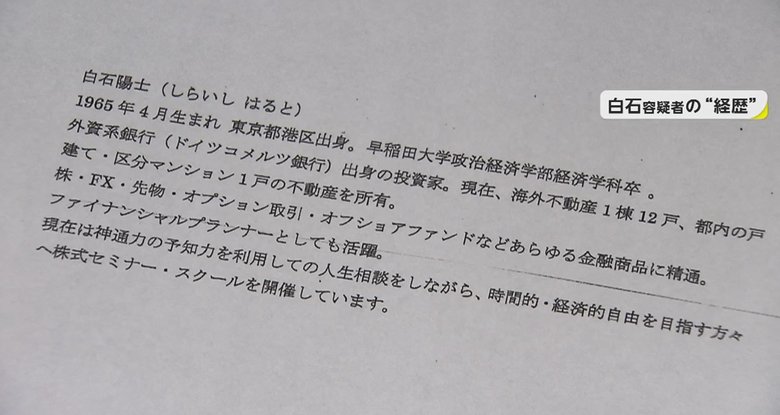 白石容疑者の“経歴”
白石陽士（しらいし はると）
1965年4月生まれ 東京都港区出身。早稲田大学政治経済学部経済学科卒 。
外資系銀行（ドイツコメルツ銀行）出身の投資家。現在、海外不動産1棟12戸、都内の戸
建て・区分マンション1戸の不動産を所有。
株・FX・先物・オプション取引・オフショアファンドなどあらゆる金融商品に精通。
ファイナンシャルプランナーとしても活躍。
現在は神通力の予知力を利用しての人生相談をしながら、時間的・経済的自由を目指す方々
へ株式セミナー・スクールを開催しています。